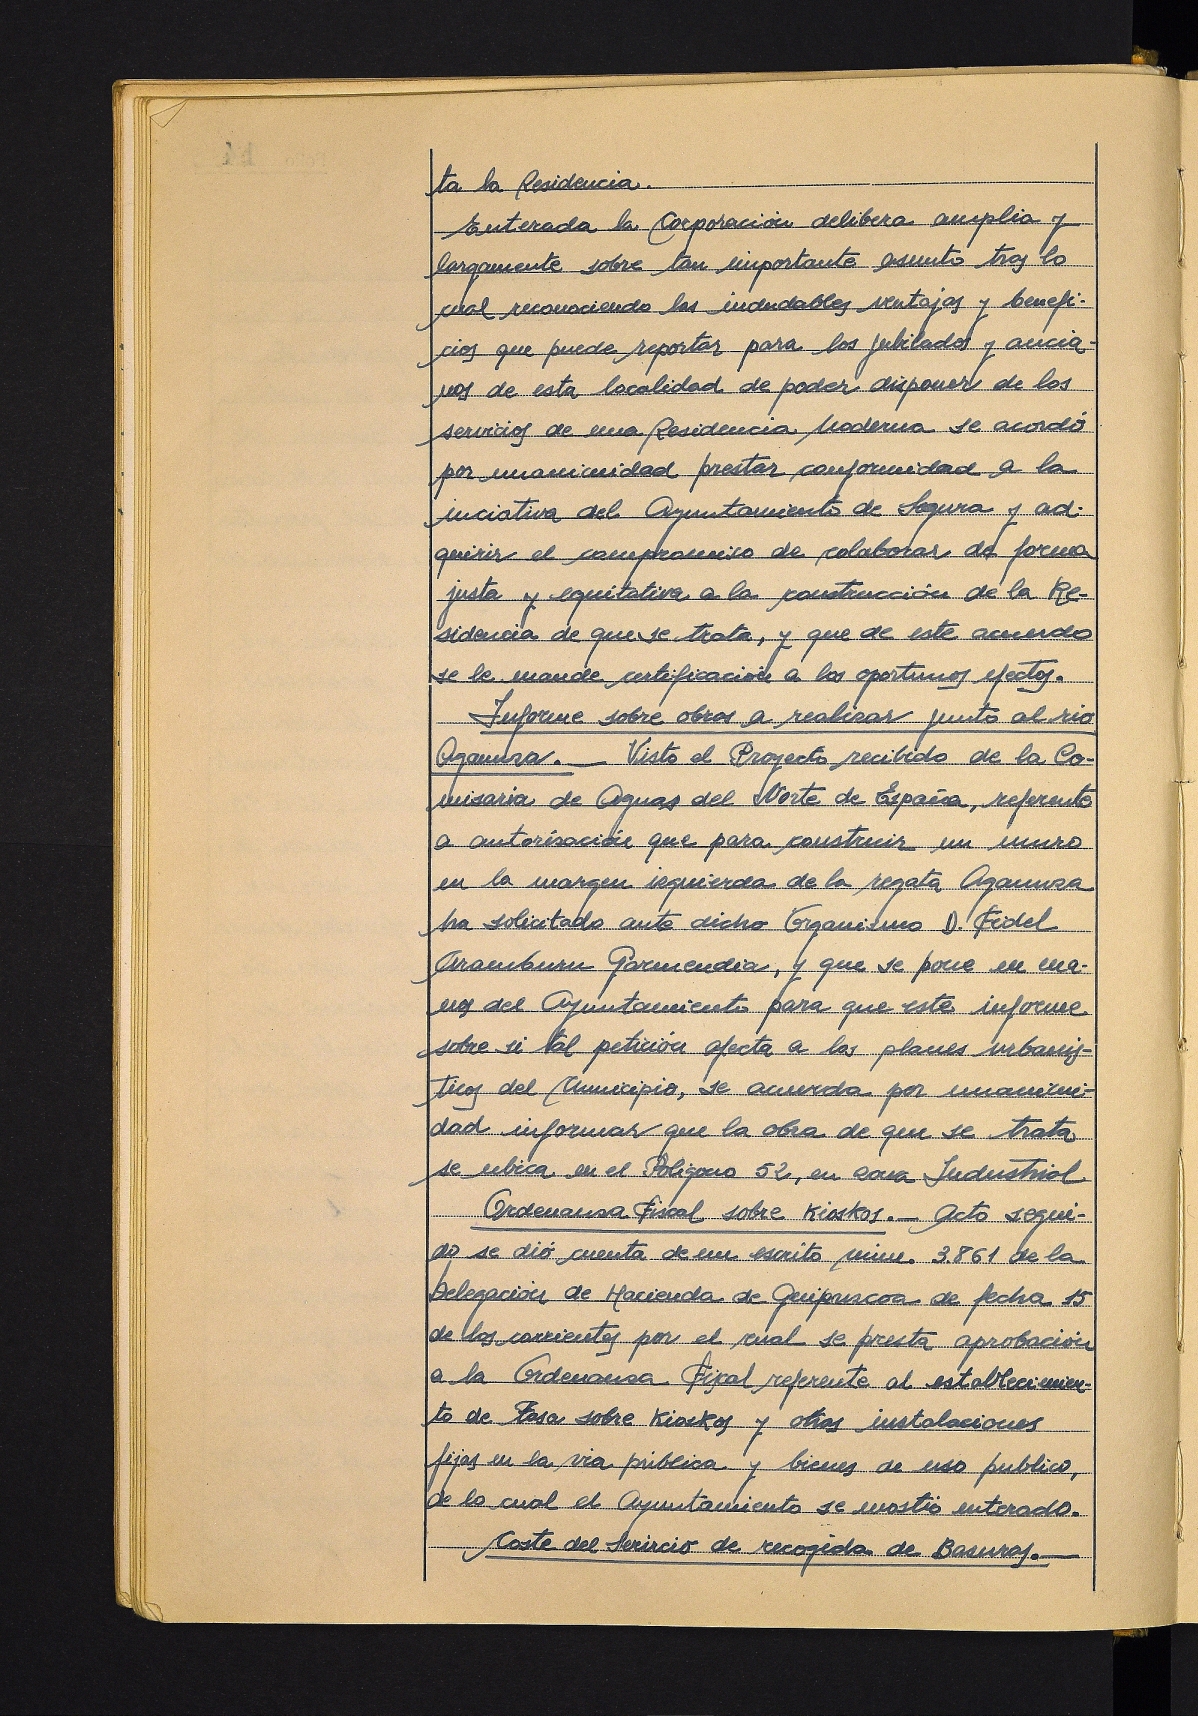 ta la Residencia.
Enterada la Corporación delibera amplia y
largamente sobre tan importante asunto tras lo
cual reconociendo las indudables ventajas y benefi-
cios que puede reportar para los jubilados y ancia-
nos de esta localidad de poder disponer de los
servicios de una Residencia Moderna se acordó
por unanimidad prestar conformidad a la
iniciativa del Ayuntamiento de Segura y ad-
quirir el compromiso de colaborar de forma
justa y equitativa a la construcción de la Re-
sidencia de que se trata, y que de este acuerdo
se le mande certificación a los oportunos efectos.
Informe sobre obras a realizar junto al rio
Agaunza. — Visto el Proyecto recibido de la Co-
misaria de Aguas del Norte de España, referente
a autorización que para construir un muro
en la margen izquierda de la regata Agaunza
ha solicitado ante dicho Organismo D. Fidel
Aramburu Garmendia, y que se pone en ma-
nos del Ayuntamiento para que este informe
sobre si tal petición afecta a los planes urbanis-
ticos del Municipio, se acuerda por unanimi-
dad informar que la obra de que se trata
se ubica en el Poligono 52, en zona Industrial
Ordenanza Fiscal sobre Kioskos. — Acto segui-
do se dió cuenta de un escrito núm. 3.861 de la
Delegación de Hacienda de Guipuzcoa de fecha 15
de los corrientes por el cual se presta aprobación
a la Ordenanza Fiscal referente al establecimien-
to de Tasa sobre Kioskos y otras instalaciones
fijas en la via pública y bienes de uso publico,
de la cual el Ayuntamiento se mostró enterado.
Coste del Servicio de recogida de Basuras. —